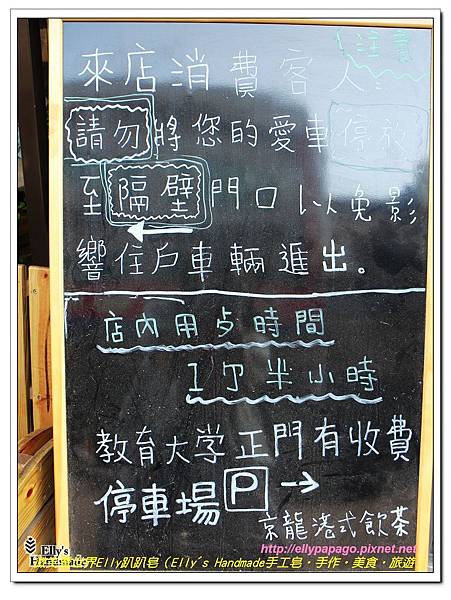 ！注意
來店消費客人：
請勿將您的愛車停放
至隔壁門口以免影
響住戶車輛進出。
店內用歺時間
1个半小時
教育大学正門有收費
停車場P→
京龍港式飲茶
http://ellypapago.pixnet.net
Elly's
Handmade
世界Elly趴趴皂（Elly's Handmade手工皂‧手作‧美食‧旅遊